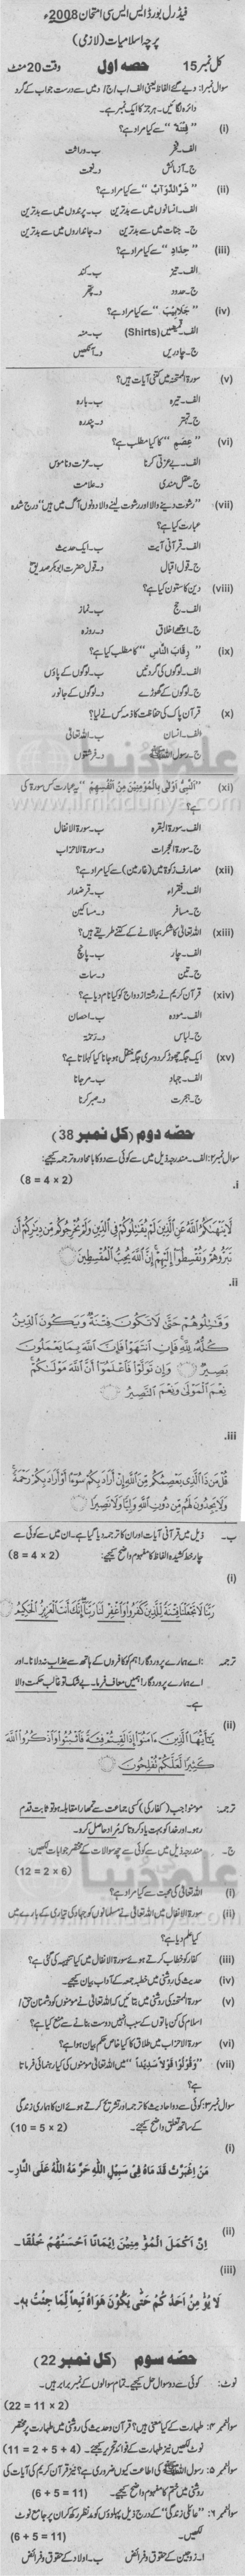 فیڈرل بورڈ ایس ایس سی امتحان 2008ء
پرچہ اسلامیات (لازمی)
کل نمبر 15 حصہ اول وقت 20 منٹ
سوال نمبر 1: دیے گئے الفاظ یعنی الف / ب / ج / د میں سے درست جواب کے گرد
دائرہ لگائیں۔ ہر جز کا ایک نمبر ہے۔
(i) "فِتْنَۃ" سے کیا مراد ہے؟
الف۔ فخر ب۔ وراثت
ج۔ آزمائش د۔ نعمت
(ii) "شَرَّ الدَّوَآبِّ" سے کیا مراد ہے؟
الف۔ انسانوں میں سے بدترین ب۔ پرندوں میں سے بدترین
ج۔ جنات میں سے بدترین د۔ جانداروں میں سے بدترین
(iii) "حِدَادٍ" سے کیا مراد ہے؟
الف۔ تیز ب۔ کند
ج۔ حدود د۔ پتھر
(iv) "جَلَابِیْبَ" سے کیا مراد ہے؟
الف۔ قمیضیں (Shirts) ب۔ منہ
ج۔ چادریں د۔ آنکھیں
(v) سورۃ الممتحنہ میں کتنی آیات ہیں؟
الف۔ تیرہ ب۔ بارہ
ج۔ تہتر د۔ پندرہ
(vi) "عِصَمِ" کا کیا مطلب ہے؟
الف۔ بے عزتی کرنا ب۔ عزت و ناموس
ج۔ عقل مندی د۔ علامت
(vii) "رشوت دینے والا اور رشوت لینے والا دونوں آگ میں ہیں" درج شدہ
عبارت کیا ہے؟
الف۔ قرآنی آیت ب۔ ایک حدیث
ج۔ قول اقبال د۔ قول حضرت ابوبکر صدیقؓ
(viii) دین کا ستون کیا ہے؟
الف۔ حج ب۔ نماز
ج۔ اچھے اخلاق د۔ روزہ
(ix) "رِقَابَ النَّاسِ" کا مطلب کیا ہے؟
الف۔ لوگوں کی گردنیں ب۔ لوگوں کے پاؤں
ج۔ لوگوں کے گھوڑے د۔ لوگوں کے جانور
(x) قرآن پاک کی حفاظت کا ذمہ کس نے لیا؟
الف۔ انسان ب۔ اللہ تعالیٰ
ج۔ رسول اللہ ﷺ د۔ فرشتوں
(xi) "اَلنَّبِیُّ اَوْلٰی بِالْمُؤْمِنِیْنَ مِنْ اَنْفُسِہِمْ" یہ عبارت کس سورۃ کی
ہے؟
الف۔ سورۃ البقرہ ب۔ سورۃ الانفال
ج۔ سورۃ الحجرات د۔ سورۃ الاحزاب
(xii) مصارف زکوۃ میں (غارمین) سے کیا مراد ہے؟
الف۔ فقراء ب۔ قرضدار
ج۔ مسافر د۔ مساکین
(xiii) اللہ تعالیٰ کا شکر بجا لانے کے کتنے طریقے ہیں؟
الف۔ چار ب۔ پانچ
ج۔ تین د۔ سات
(xiv) قرآن کریم نے رشتہ ازدواج کو کیا نام دیا ہے؟
الف۔ مودہ ب۔ احصان
ج۔ لباس د۔ رحمتہ
(xv) ایک جگہ چھوڑ کر دوسری جگہ منتقل ہو جانا کیا کہلاتا ہے؟
الف۔ جہاد ب۔ مر جانا
ج۔ ہجرت د۔ صبر کرنا
حصہ دوم (کل نمبر 38)
سوال نمبر ۲: الف۔ مندرجہ ذیل میں سے کوئی سے دو کا بامحاورہ ترجمہ کیجیے:
(8 = 4 × 2)
i.
لَا یَنْہٰکُمُ اللّٰہُ عَنِ الَّذِیْنَ لَمْ یُقَاتِلُوْکُمْ فِی الدِّیْنِ وَلَمْ یُخْرِجُوْکُمْ مِّنْ دِیَارِکُمْ اَنْ
تَبَرُّوْہُمْ وَتُقْسِطُوْا اِلَیْہِمْ اِنَّ اللّٰہَ یُحِبُّ الْمُقْسِطِیْنَ
ii.
وَقَاتِلُوْہُمْ حَتّٰی لَا تَکُوْنَ فِتْنَۃٌ وَّیَکُوْنَ الدِّیْنُ
کُلُّہٗ لِلّٰہِ فَاِنِ انْتَہَوْا فَاِنَّ اللّٰہَ بِمَا یَعْمَلُوْنَ
بَصِیْرٌ وَاِنْ تَوَلَّوْا فَاعْلَمُوْا اَنَّ اللّٰہَ مَوْلٰکُمْ
نِعْمَ الْمَوْلٰی وَنِعْمَ النَّصِیْرُ
iii.
قُلْ مَنْ ذَا الَّذِیْ یَعْصِمُکُمْ مِّنَ اللّٰہِ اِنْ اَرَادَ بِکُمْ سُوْٓءًا اَوْ اَرَادَ بِکُمْ رَحْمَۃً
وَلَا یَجِدُوْنَ لَہُمْ مِّنْ دُوْنِ اللّٰہِ وَلِیًّا وَّلَا نَصِیْرًا
ب۔ ذیل میں قرآنی آیات اور ان کا ترجمہ دیا گیا ہے۔ ان میں سے کوئی سے
چار خط کشیدہ الفاظ کا مفہوم واضح کیجیے: (8 = 4 × 2)
(i)
رَبَّنَا لَا تَجْعَلْنَا فِتْنَۃً لِّلَّذِیْنَ کَفَرُوْا وَاغْفِرْ لَنَا رَبَّنَا اِنَّکَ اَنْتَ الْعَزِیْزُ الْحَکِیْمُ
ترجمہ: اے ہمارے پروردگار! ہم کو کافروں کے ہاتھ سے عذاب نہ دلانا۔ اور
اے ہمارے پروردگار! ہمیں معاف فرما۔ بے شک تو غالب حکمت والا
ہے۔
(ii)
یٰٓاَیُّہَا الَّذِیْنَ اٰمَنُوْٓا اِذَا لَقِیْتُمْ فِئَۃً فَاثْبُتُوْا وَاذْکُرُوا اللّٰہَ
کَثِیْرًا لَّعَلَّکُمْ تُفْلِحُوْنَ
ترجمہ: مومنو! جب (کفار کی) کسی جماعت سے تمہارا مقابلہ ہو تو ثابت قدم
رہو۔ اور خدا کو بہت یاد کرو تا کہ مراد حاصل کرو۔
ج۔ مندرجہ ذیل میں سے کوئی سے چھ سوالات کے مختصر جوابات لکھیں:
(12 = 2 × 6)
(i) اللہ تعالیٰ کی محبت سے کیا مراد ہے؟
(ii) سورۃ الانفال میں اللہ تعالیٰ نے مسلمانوں کو جہاد کی تیاری کے بارے میں
کیا حکم دیا ہے؟
(iii) کفار کو خطاب کرتے ہوئے سورۃ الانفال میں کیا تنبیہہ کی گئی ہے؟
(iv) حدیث کی روشنی میں خطبہ جمعہ کے آداب بیان کیجیے۔
(v) سورۃ الممتحنہ کی روشنی میں بتائیں کہ اللہ تعالیٰ نے مومنوں کو دشمنان حق /
اسلام کی کن باتوں کے سبب انہیں دوست بنانے سے منع کیا ہے؟
(vi) سورۃ الاحزاب میں طلاق کا کیا خاص حکم بیان ہوا ہے؟
(vii) "وَقُوْلُوْا قَوْلًا سَدِیْدًا" میں اللہ تعالیٰ مومنوں کی کیا رہنمائی فرماتا
ہے؟
سوال نمبر ۳: کوئی سے دو احادیث کا ترجمہ اور تشریح کرتے ہوئے ان کا ہماری زندگی
کے ساتھ تعلق واضح کیجیے۔ (10 = 5 × 2)
(i)
مَنِ اغْبَرَّتْ قَدَمَاہُ فِیْ سَبِیْلِ اللّٰہِ حَرَّمَہُ اللّٰہُ عَلَی النَّارِ۔
(ii)
اِنَّ اَکْمَلَ الْمُؤْمِنِیْنَ اِیْمَانًا اَحْسَنُہُمْ خُلُقًا۔
(iii)
لَا یُؤْمِنُ اَحَدُکُمْ حَتّٰی یَکُوْنَ ہَوَاہُ تَبَعًا لِّمَا جِئْتُ بِہٖ۔
حصہ سوم (کل نمبر 22)
نوٹ: کوئی سے دو سوال حل کیجیے۔ تمام سوالوں کے نمبر برابر ہیں۔
(22 = 11 × 2)
سوال نمبر ۴: طہارت کے کیا معنی ہیں؟ قرآن و حدیث کی روشنی میں طہارت پر مختصر
نوٹ لکھیں نیز طہارت کے فوائد تحریر کیجیے۔ (11 = 2 + 5 + 4)
سوال نمبر ۵: رسول اللہ ﷺ کی اطاعت کیوں ضروری ہے؟ نیز قرآن کریم کی آیات کی
روشنی میں ختم کا مفہوم واضح کیجیے۔ (6 + 5 = 11)
سوال نمبر ۶: "عائلی زندگی" کے درج ذیل پہلوؤں کو مدنظر رکھ کر ان پر جامع نوٹ
لکھیں۔ (6 + 5 = 11)
ا۔ زوجین کے حقوق و فرائض ب۔ اولاد کے حقوق و فرائض
علم کی دنیا
www.ilmkidunya.com